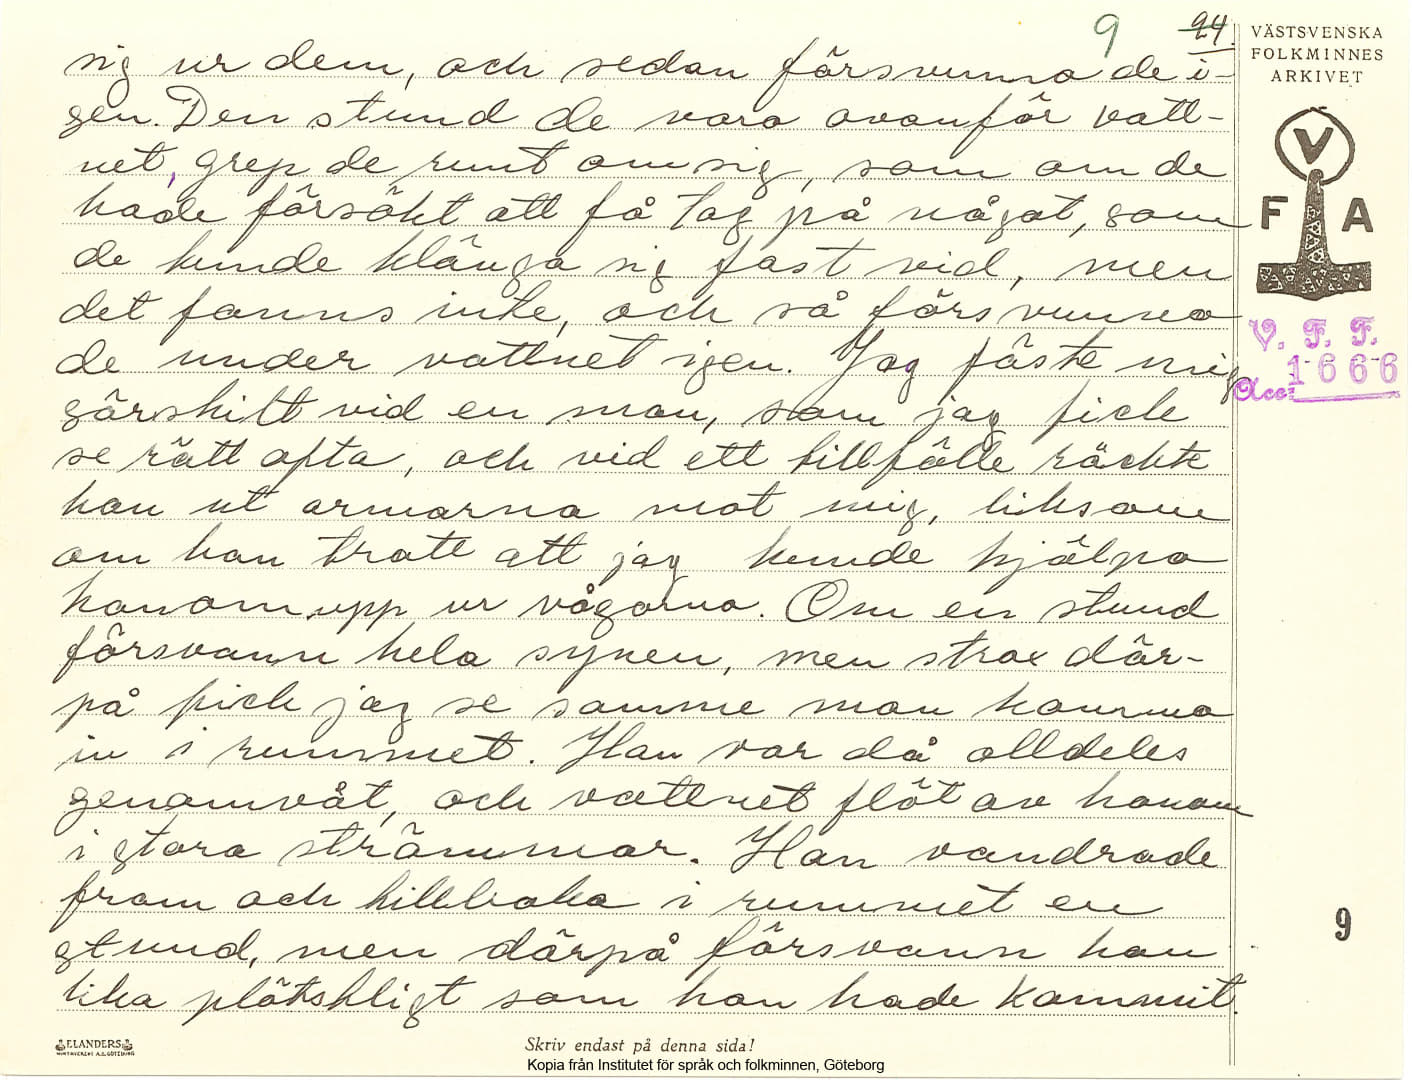 9 24.
VÄSTSVENSKA
FOLKMINNES
ARKIVET
sig ur dem, och sedan försvunno de i-
gen. Den stund de voro ovanför vatt-
net, grep de runt om sig, som om de
hade försökt att få tag på något, som
de kunde klänga sig fast vid, men
det fanns inte, och så försvunno
de under vattnet igen. Jag fäste mig
särskilt vid en man, som jag fick
se rätt ofta, och vid ett tillfälle räckte
han ut armarna mot mig, liksom
om han trott att jag kunde hjälpa
honom upp ur vågorna. Om en stund
försvann hela synen, men strax där-
på fick jag se samme man komma
in i rummet. Han var då alldeles
genomvåt, och vattnet flöt av honom
i stora strömmar. Han vandrade
fram och tillbaka i rummet en
stund, men därpå försvann han
lika plötsligt som han hade kommit.
V
F A
V. F. F.
Acc: 1666
9
ELANDERS
Skriv endast på denna sida!
Kopia från Institutet för språk och folkminnen, Göteborg